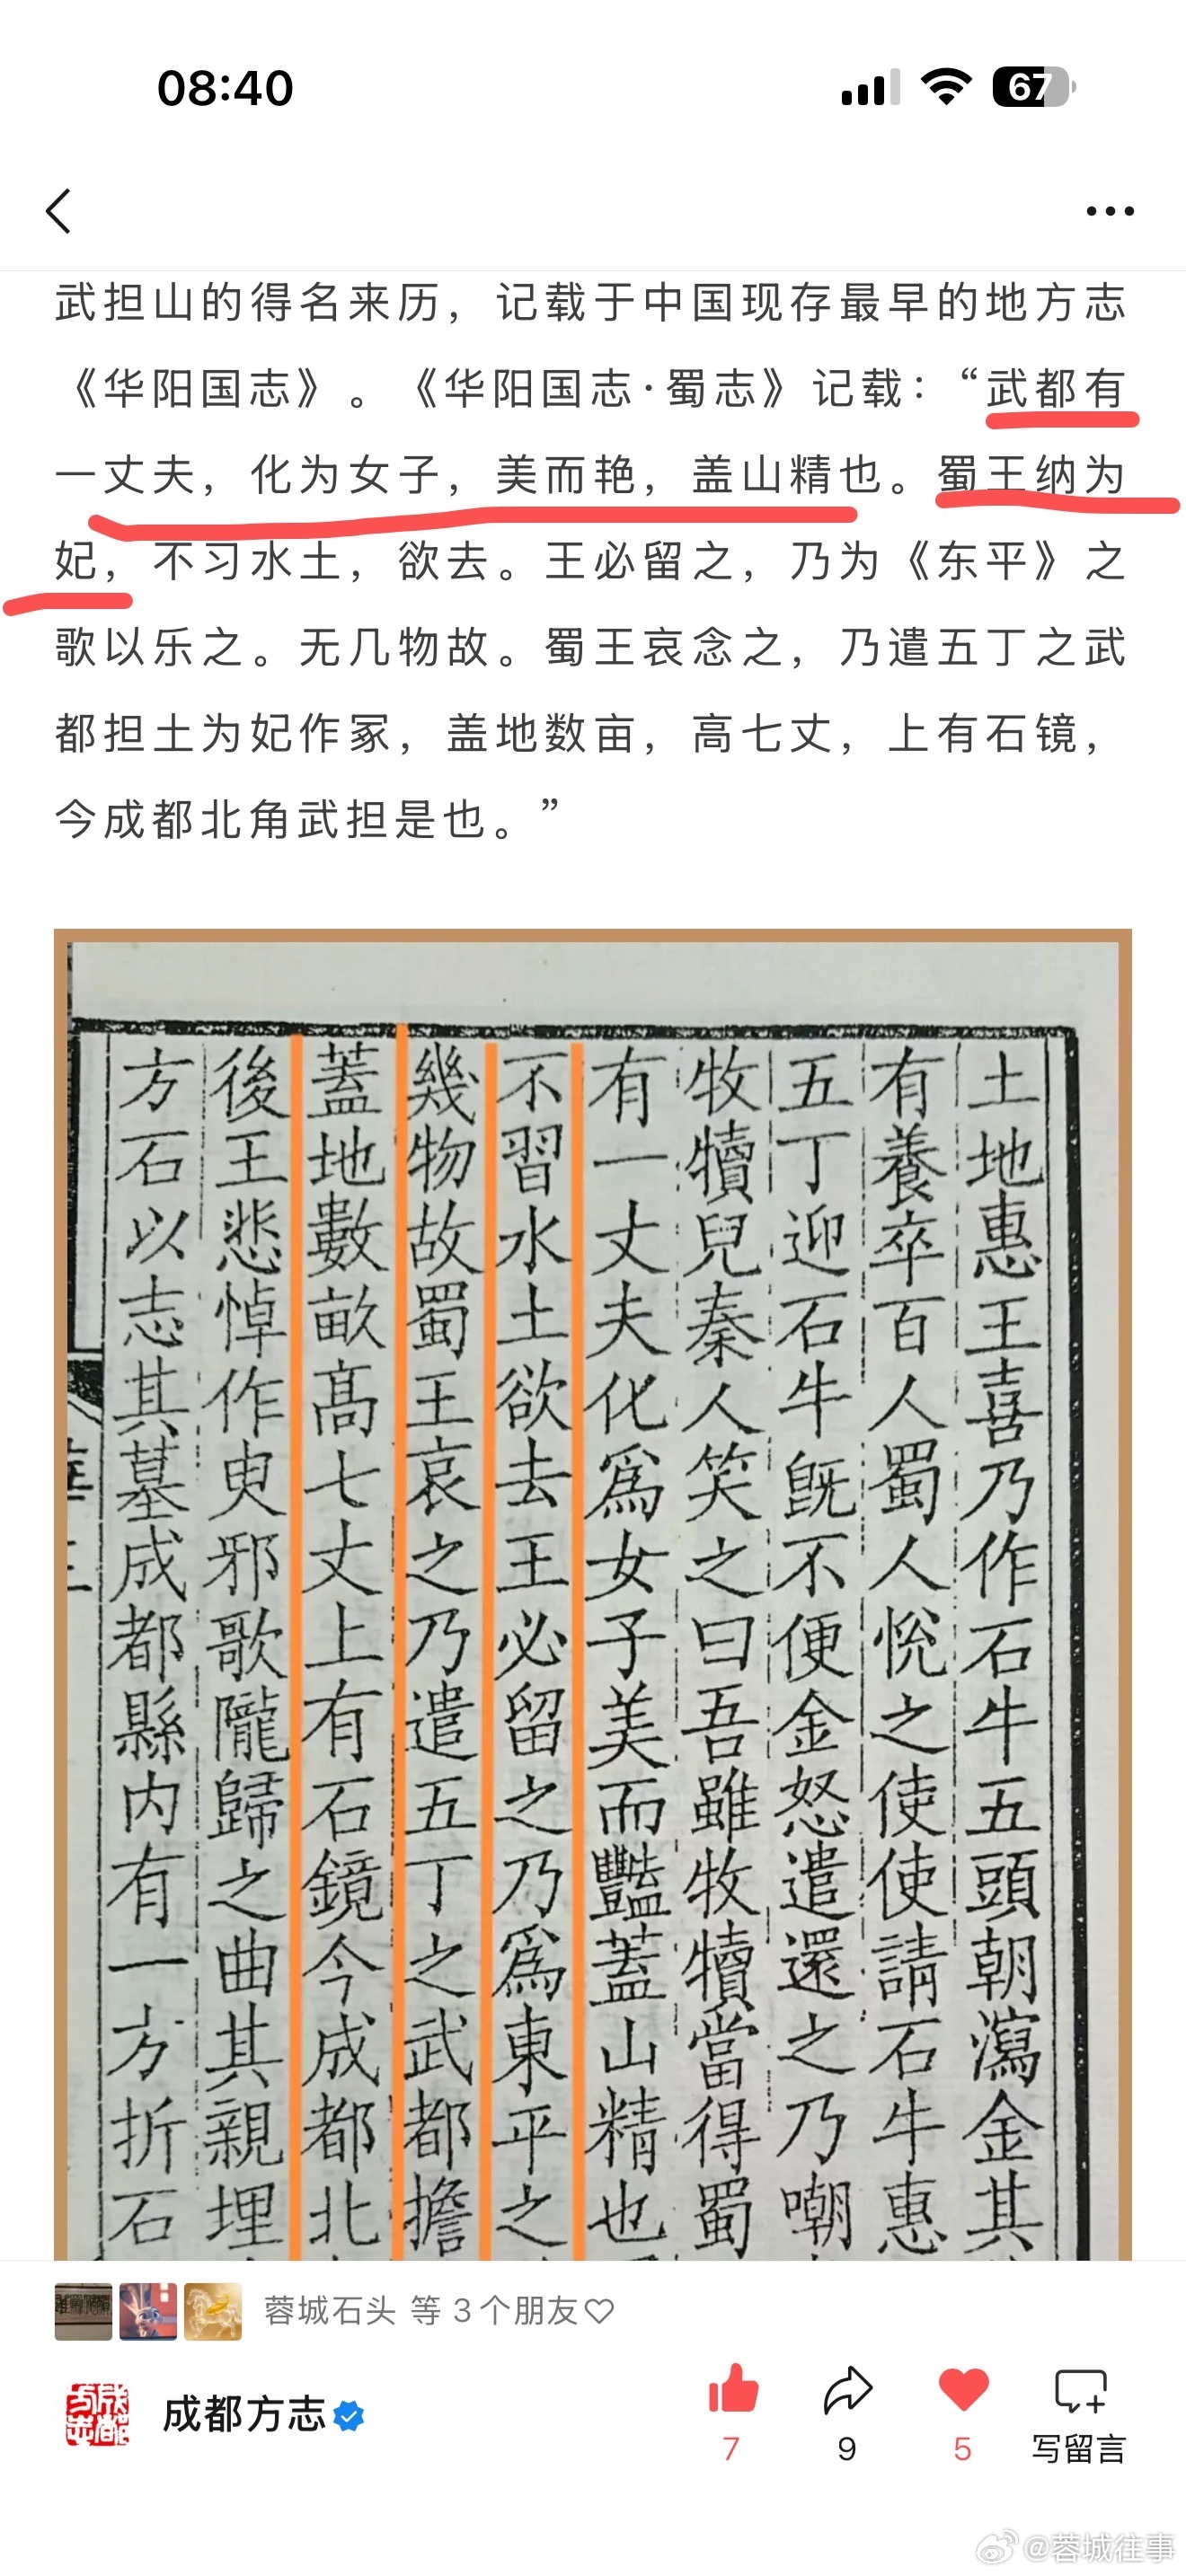 08:40
67
武担山的得名来历，记载于中国现存最早的地方志
《华阳国志》。《华阳国志·蜀志》记载：“武都有
一丈夫，化为女子，美而艳，盖山精也。蜀王纳为
妃，不习水土，欲去。王必留之，乃为《东平》之
歌以乐之。无几物故。蜀王哀念之，乃遣五丁之武
都担土为妃作冢，盖地数亩，高七丈，上有石镜，
今成都北角武担是也。”
土地惠王喜乃作石牛五頭朝瀉金其
有養卒百人蜀人恱之使使請石牛惠
五丁迎石牛旣不便金怒遣還之乃嘲
牧犢兒秦人笑之曰吾雖牧犢當得蜀
有一丈夫化爲女子美而豔蓋山精也
不習水土欲去王必留之乃爲東平之
幾物故蜀王哀之乃遣五丁之武都擔
蓋地數畝髙七丈上有石鏡今成都北
後王悲悼作臾邪歌隴歸之曲其親埋
方石以志其墓成都縣内有一方折石
蓉城石头 等 3 个朋友
成都方志
成都方志
7
9
5
写留言
@蓉城往事